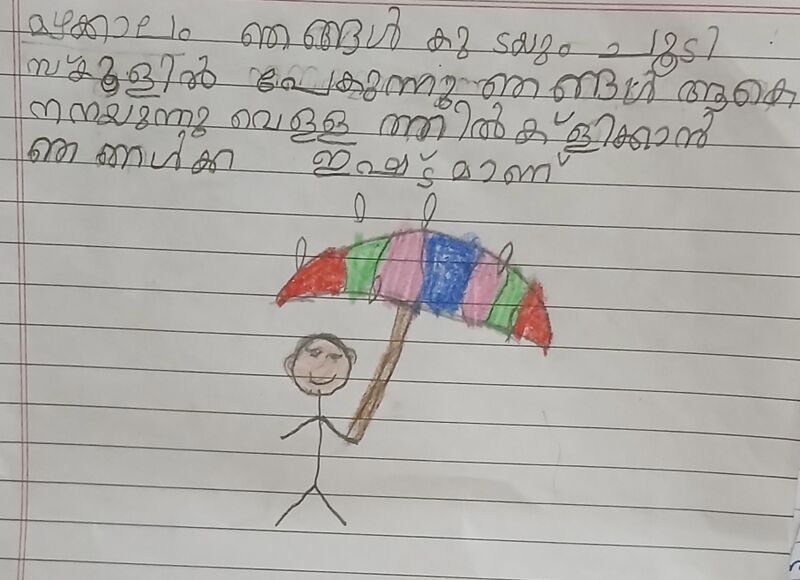 മഴക്കാലം ഞങ്ങൾ കുടയും ചൂടി
സ്കൂളിൽ പോകുന്നു ഞങ്ങൾ ആകെ
നനയുന്നു വെള്ളത്തിൽ കളിക്കാൻ
ഞങ്ങൾക്ക ഇഷ്ട്ടമാണ്